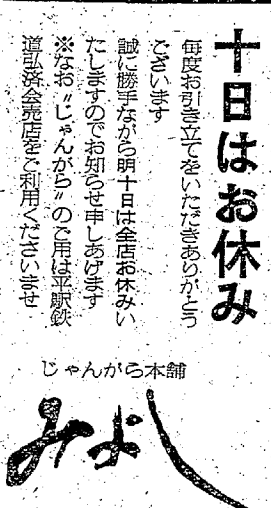 十日はお休み
毎度お引き立てをいただきありがとう
ございます
誠に勝手ながら明十日は全店お休みい
たしますのでお知らせ申しあげます
※なお〝じゃんがら〟のご用は平駅鉄
道弘済会売店をご利用くださいませ
じゃんがら本舗
みよし